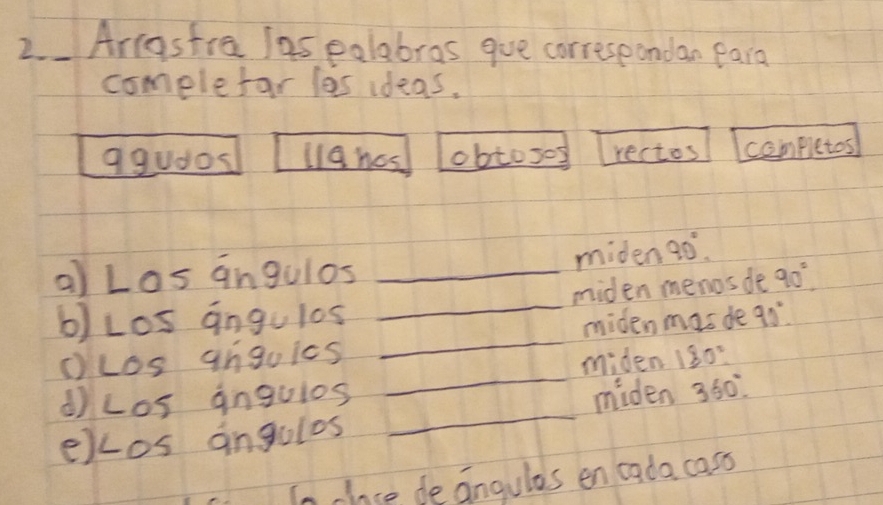 2.- Arrastra las palabras que correspondan para
completar las ideas.
agudos llanos obtosos rectos completos
a) Los ángulos ______ miden 90°.
b) Los ángulos ______ miden menos de 90°.
c) Los ángulos ______ miden mas de 90°.
d) Los ángulos ______ miden 180°.
e) Los ángulos ______ miden 360°.
de ángulos en cada caso